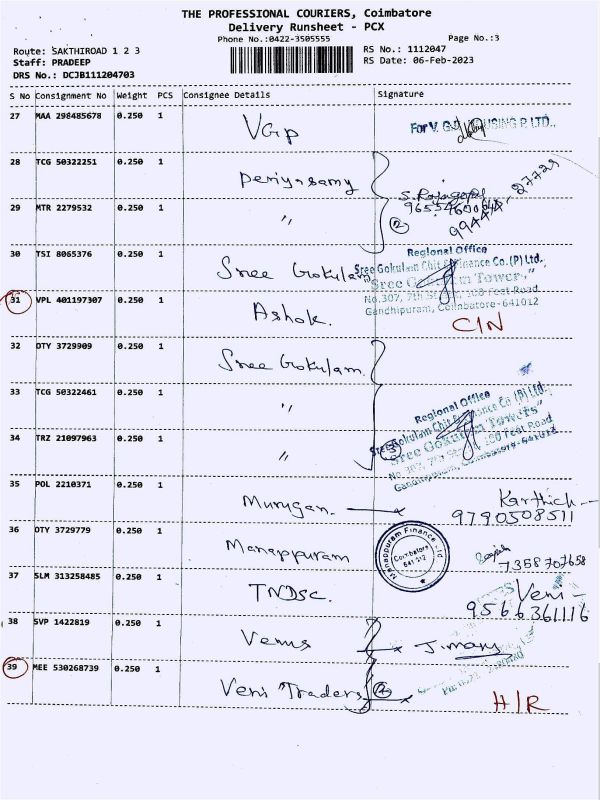 THE PROFESSIONAL COURIERS, Coimbatore
Delivery Runsheet - PCX
Phone No.:0422-3505555
Page No.:3
Route: SAKTHIROAD 1 2 3
RS No.: 1112047
Staff: PRADEEP
RS Date: 06-Feb-2023
DRS No.: DCJB111204703
S No Consignment No Weight PCS Consignee Details Signature
27 MAA 298485678 0.250 1 VGP For V. G.P. HOUSING P. LTD.,
28 TCG 50322251 0.250 1 Periyasamy S. Rajagopal
29 MTR 2279532 0.250 1 〃 2
30 TSI 8065376 0.250 1 Sree Gokulam
Regional Office
Sree Gokulam Chit & Finance Co.(P) Ltd.,
"Sree Gokulam Tower,"
No.307, 7th St., 100 Feet Road,
Gandhipuram, Coimbatore-641012
31 VPL 401197307 0.250 1 Ashok. C/N
32 OTY 3729909 0.250 1 Sree Gokulam.
33 TCG 50322461 0.250 1 〃
34 TRZ 21097963 0.250 1 〃 3
Regional Office
Sree Gokulam Chit & Finance Co (P) Ltd.,
"Sree Gokulam Towers"
No.307, 7th St., 100 Feet Road
Gandhipuram, Coimbatore-641012
35 POL 2210371 0.250 1 Murugan. Karthick
9790508511
36 OTY 3729779 0.250 1 Manappuram
Manappuram Finance Ltd
Coimbatore
641 012
7358707658
37 SLM 313258485 0.250 1 TNDSC. Veni
9566361116
38 SVP 1422819 0.250 1 Venus J. mary
39 MEE 530268739 0.250 1 Veni Traders 2 H/R